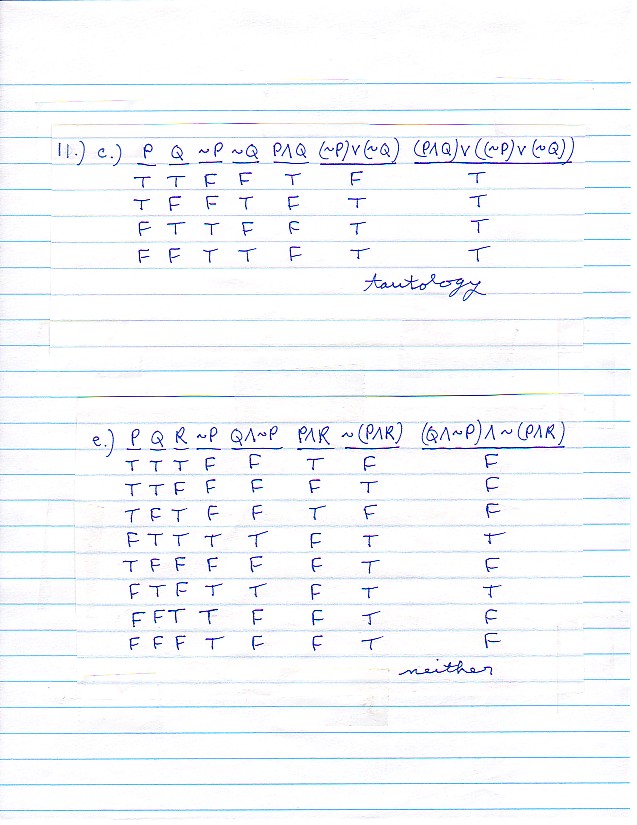 11.) c.) P Q ~P ~Q P∧Q (~P)∨(~Q) (P∧Q)∨((~P)∨(~Q))
T T F F T F T
T F F T F T T
F T T F F T T
F F T T F T T
tautology
e.) P Q R ~P Q∧~P P∧R ~(P∧R) (Q∧~P)∧~(P∧R)
T T T F F T F F
T T F F F F T F
T F T F F T F F
F T T T T F T T
T F F F F F T F
F T F T T F T T
F F T T F F T F
F F F T F F T F
neither